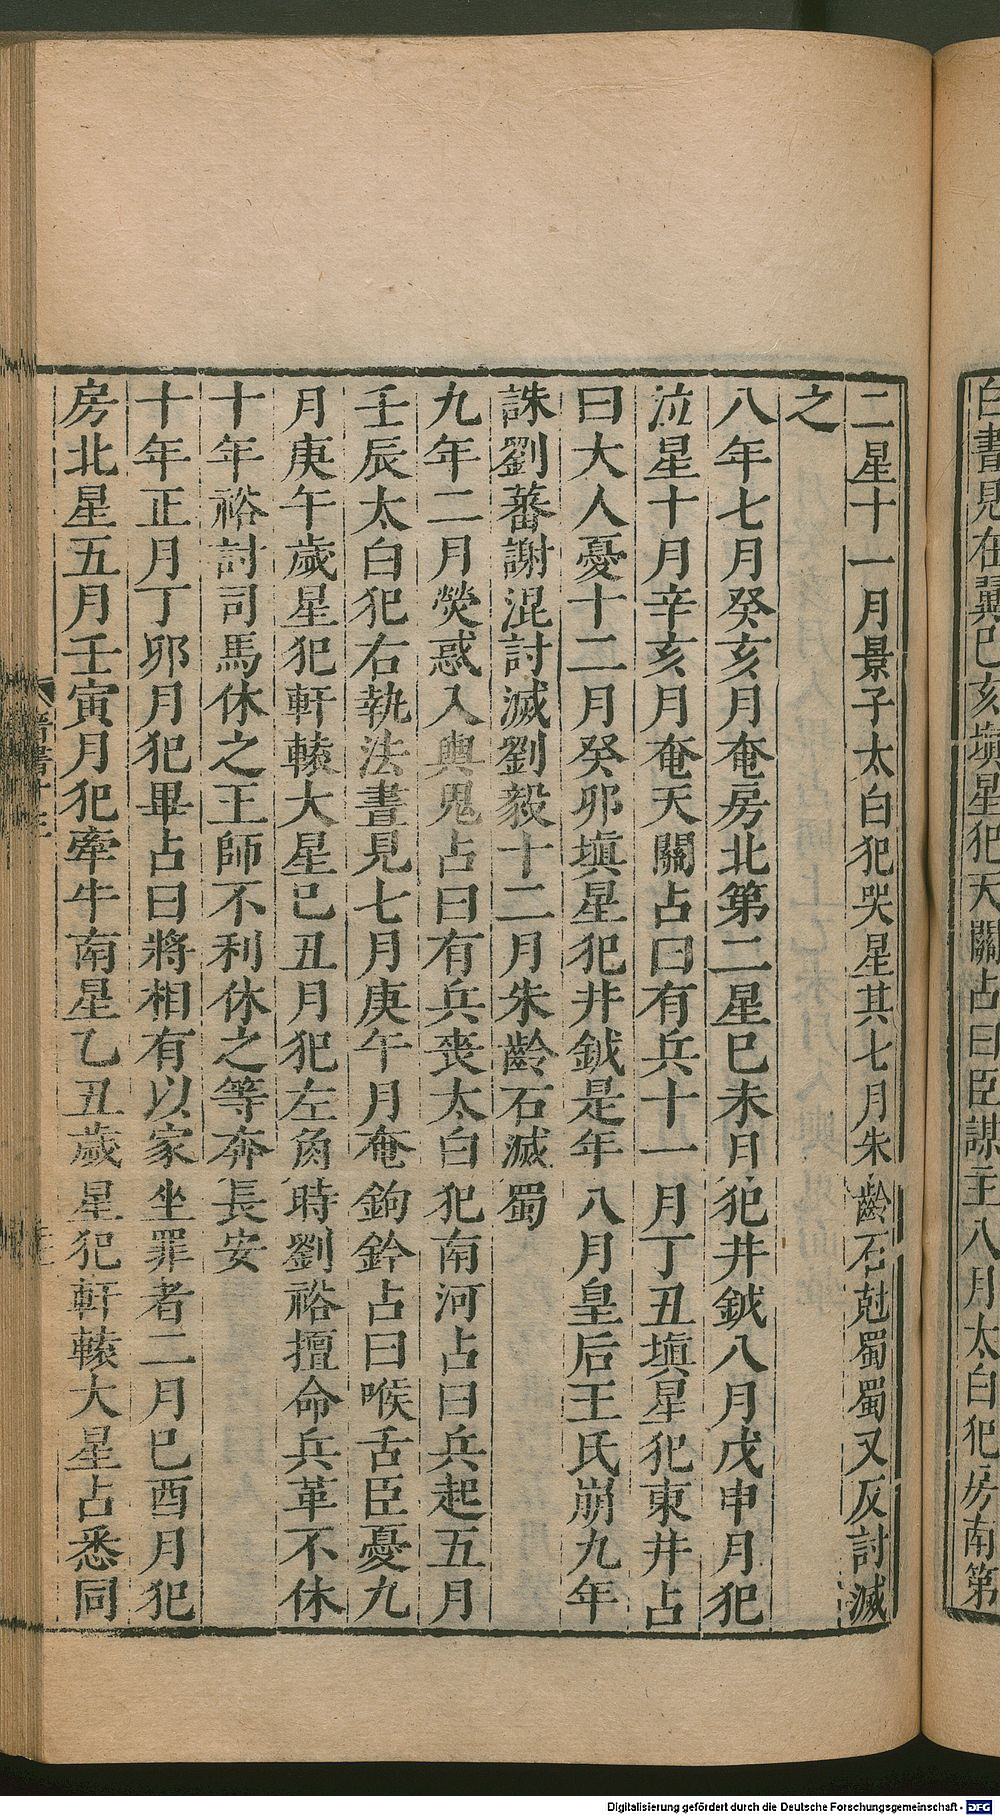 白晝見在翼巳亥塡星犯天關占曰臣謀主八月太白犯房南第
二星十一月景子太白犯哭星其七月朱齡石尅蜀蜀又反討滅
之
八年七月癸亥月奄房北第二星巳未月犯井鉞八月戊申月犯
泣星十月辛亥月奄天關占曰有兵十一月丁丑塡星犯東井占
曰大人憂十二月癸卯塡星犯井鉞是年八月皇后王氏崩九年
誅劉蕃謝混討滅劉毅十二月朱齡石滅蜀
九年二月熒惑入輿鬼占曰有兵喪太白犯南河占曰兵起五月
壬辰太白犯右執法晝見七月庚午月奄鉤鈐占曰喉舌臣憂九
月庚午歲星犯軒轅大星巳丑月犯左角時劉裕擅命兵革不休
十年裕討司馬休之王師不利休之等奔長安
十年正月丁卯月犯畢占曰將相有以家坐罪者二月巳酉月犯
房北星五月壬寅月犯牽牛南星乙丑歲星犯軒轅大星占悉同
晉書十三
Digitalisierung gefördert durch die Deutsche Forschungsgemeinschaft - DFG